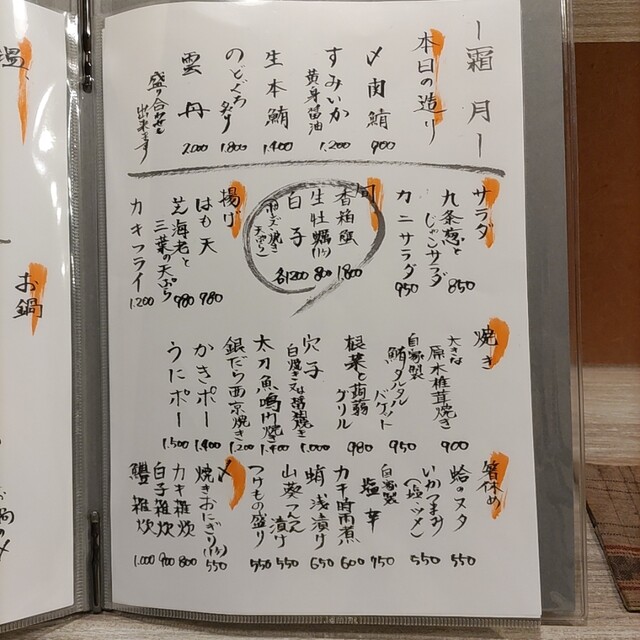 霜月
本日の造り
〆肉鯖 900
すみいか
黄身醤油 1.200
生本鮪 1.400
のどぐろ炙り 1.800
雲丹 2.000
盛り合わせも
出来ます
サラダ
九条葱と
じゃこサラダ 850
カニサラダ 950
旬
香箱蟹 1800
生牡蠣(1ケ) 800
白子 各1200
天ぷら)
揚げ
はも天 980
芝海老と
三葉の天ぷら 980
カキフライ 1.200
焼き
大きな
原木椎茸焼き 900
自家製
鮪タルタル
バケット 950
根菜と蒟蒻
グリル 980
穴子
白焼き又は醤油焼き 1.000
太刀魚鳴門焼き 1.400
銀だら西京焼き 1.200
かきポー 1.400
うにポー 1.500
箸休め
蛤のヌタ 550
いかつまみ
(塩・ツメ) 550
自家製
塩辛 750
カキ時雨煮 600
蛸浅漬け 650
山葵こんこん漬け 550
つけもの盛り 550
〆
焼きおにぎり(1ケ) 550
カキ雑炊 800
白子雑炊 900
鱧雑炊 1.000
お鍋